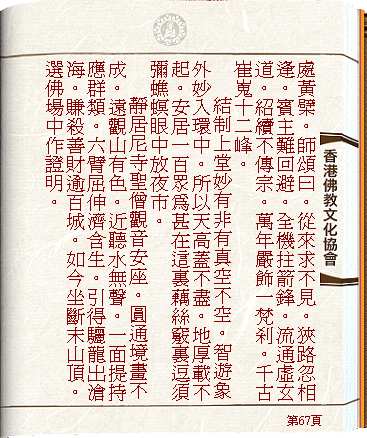 處黃檗。師頌曰。從來求不見。狹路忽相
逢。賓主難回避。全機拄箭鋒。流通虛玄
道。紹續不傳宗。萬年嚴飾一梵剎。千古
崔嵬十二峰。
結制上堂妙有非有真空不空。智遊象
外妙入環中。所以天高蓋不盡。地厚載不
起。安居一百眾爲甚在這裏藕絲竅裏逗須
彌蟭螟眼中放夜市。
靜居尼寺聖僧觀音安座。圓通境畫不
成。遠觀山有色。近聽水無聲。一面提持
應群類。六臂屈伸濟含生。引得驪龍出滄
海。賺殺善財逾百城。如今坐斷末山頂。
選佛場中作證明。
香港佛教文化協會
第67頁